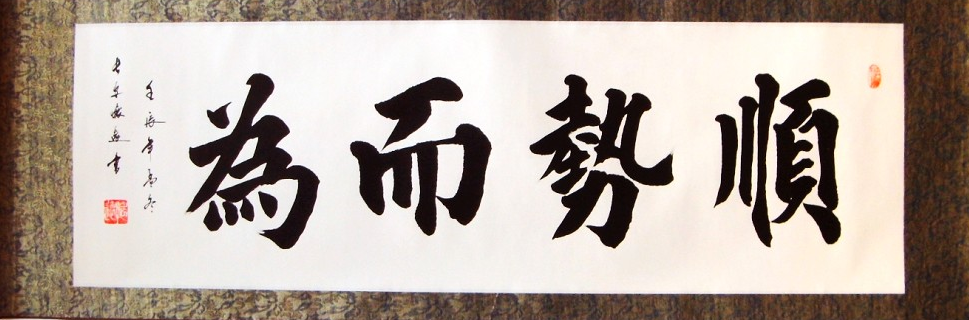 順勢而為
壬辰年
書